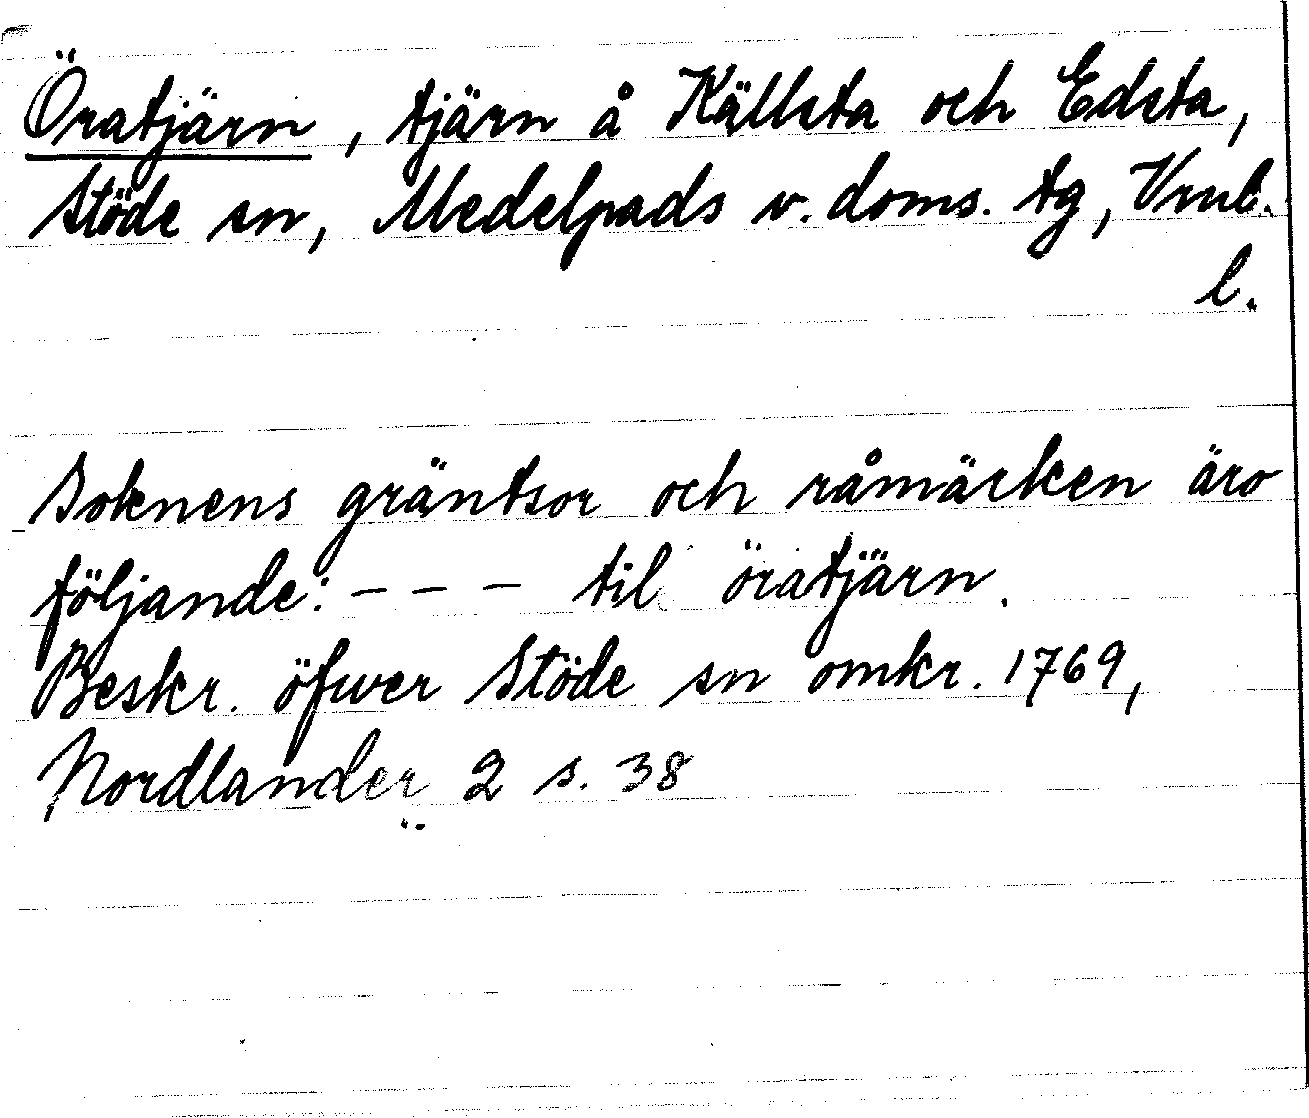 Öratjärn, tjärn å Källsta och Edsta,
Stöde sn, Medelpads v. doms. tg, Vnnl.
l.
Soknens gräntsor och råmärken äro
följande: - - - til öratjärn.
Beskr. öfwer Stöde sn omkr. 1769,
Nordlander 2 s. 38